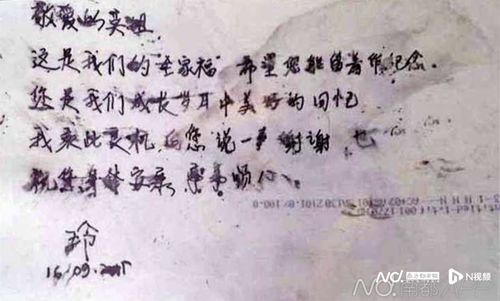 敬爱的英姐
这是我们的"全家福"希望您能留着作纪念.
您是我们成长岁月中美好的回忆
我乘此良机向您说一声谢谢,也
祝您身体安康,事事顺心.
玲
16.09.
NO. N视频
NO. 南都